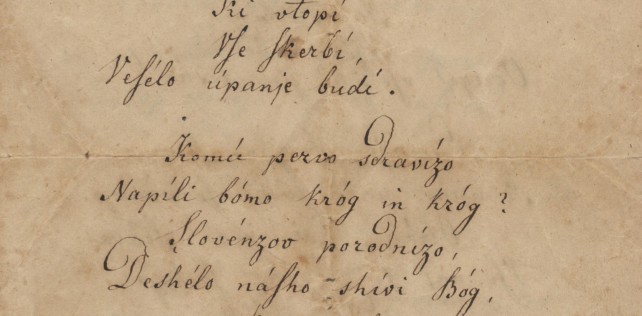 Ki vtopí
Vſe ſkerbí,
Veſélo úpanje budí.
Komú pervo sdravízo
Napíli bómo króg in króg?
Slovénzov porodnízo,
Deshélo náſho shívi Bóg,